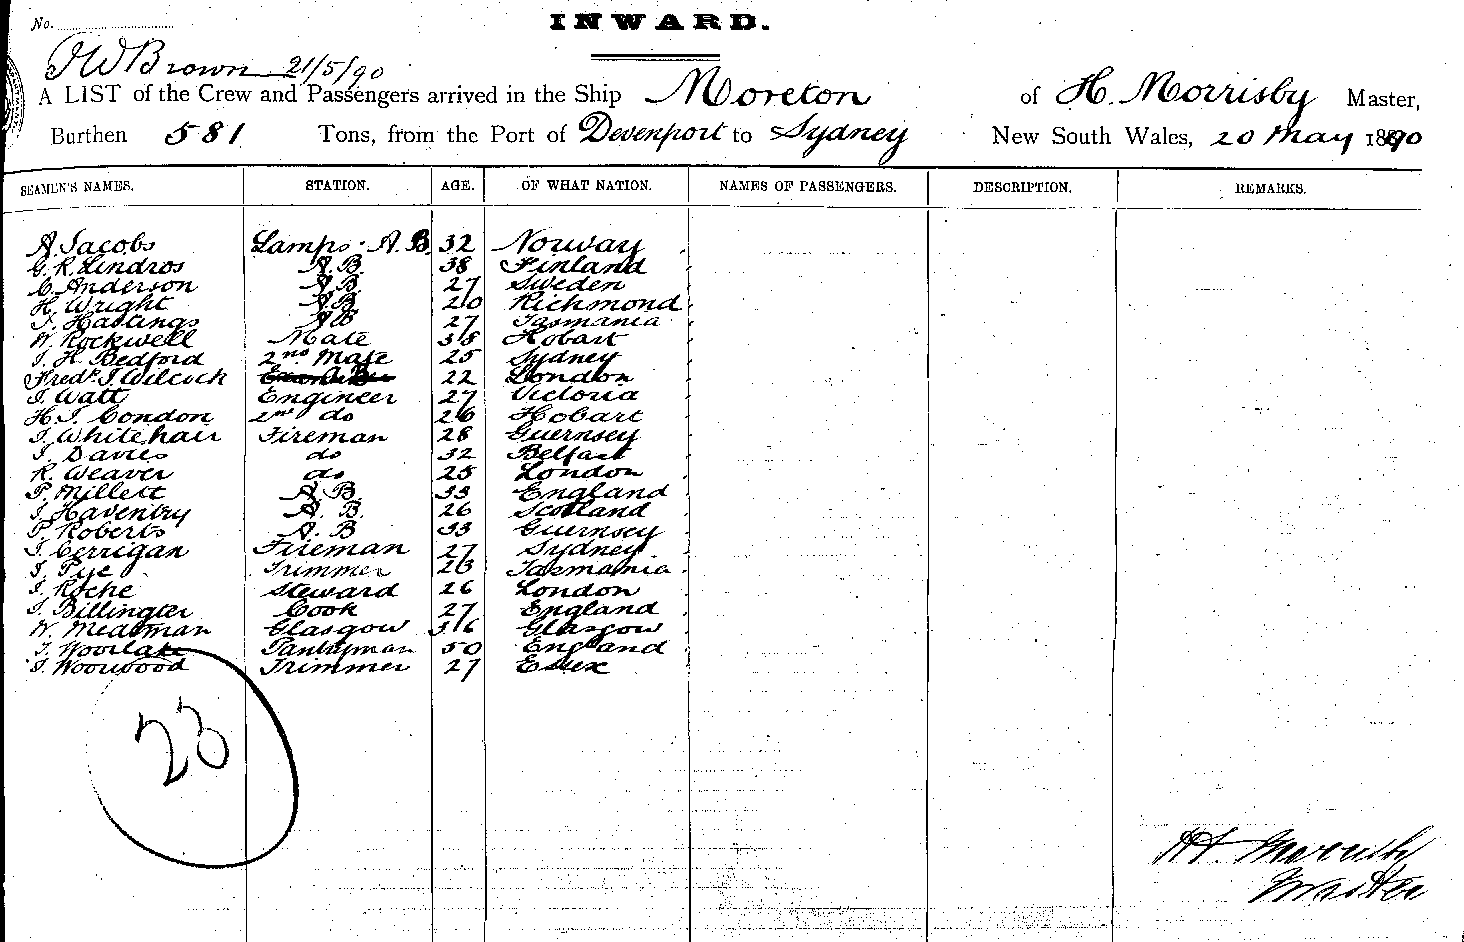 No.
INWARD.
JWBrown 21/5/90
A LIST of the Crew and Passengers arrived in the Ship Moreton of H. Morrisby Master,
Burthen 581 Tons, from the Port of Devenport to Sydney New South Wales, 20 May 1890
SEAMEN'S NAMES. STATION. AGE. OF WHAT NATION. NAMES OF PASSENGERS. DESCRIPTION. REMARKS.
A. Jacobs Lamps. A.B. 32 Norway
G. R. Lindros A.B. 38 Finland
C. Anderson A.B. 27 Sweden
H. Wright A.B. 20 Richmond
T. Hastings AB 27 Tasmania
W. Rockwell Mate 38 Hobart
J. H. Bedford 2nd Mate 25 Sydney
Fredk. J. Wilcock 22 London
J. Watt Engineer 27 Victoria
H. J. Condon 2nd do 26 Hobart
J. Whitehair Fireman 28 Guernsey
J. Davies do 32 Belfast
R. Weaver do 25 London
P. Millett A.B. 33 England
J. Haventry A.B. 26 Scotland
P. Roberts A.B 33 Guernsey
J. Cerrigan Fireman 27 Sydney
J. Pye Trimmer 23 Tasmania
J. Roche Steward 26 London
J. Billington Cook 27 England
W. Medeman Glasgow 36 Glasgow
J. Woorlake Pantryman 50 England
J. Woorwood Trimmer 27 Essex
23
H. Morrisby
Master